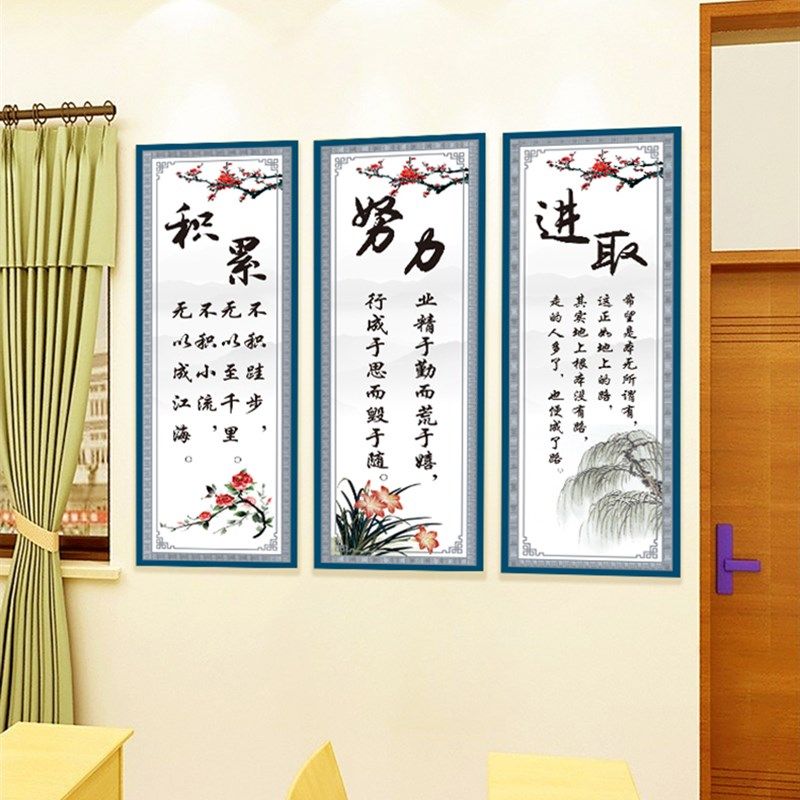 积累
不积跬步，
无以至千里
不积小流，
无以成江海。
努力
业精于勤而荒于嬉，
行成于思而毁于随。
进取
希望是本无所谓有，
这正如地上的路，
其实地上根本没有路，
走的人多了，也便成了路。